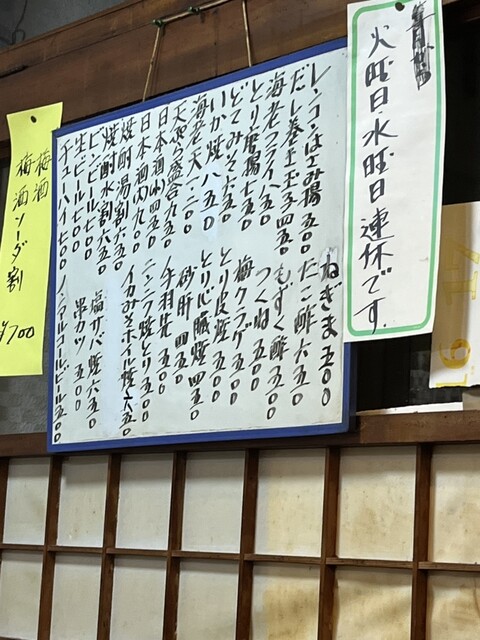 火曜日水曜日連休です
レンコンはさみ揚 五〇〇
だし巻玉子 四五〇
海老フライ 八五〇
とり唐揚 七五〇
どてみそ 五五〇
いか焼 八五〇
海老天 一二〇〇
天ぷら盛合 九五〇
日本酒(小) 四五〇
日本酒(大) 九〇〇
焼酎湯割 六五〇
焼酎水割 六五〇
ビンビール 七〇〇
生ビール 七〇〇
チューハイ 七〇〇
ねぎま 五〇〇
たこ酢 六五〇
もずく酢 五〇〇
つくね 五〇〇
梅クラゲ 五〇〇
とり皮焼 五〇〇
とり心臓焼 四五〇
砂肝 四五〇
手羽先 五〇〇
ニンニク焼とり 五〇〇
イカみそホイル焼 六五〇
塩サバ焼 六五〇
串カツ 五〇〇
ノンアルコールビール 五〇〇
梅酒
梅酒ソーダ割
¥700